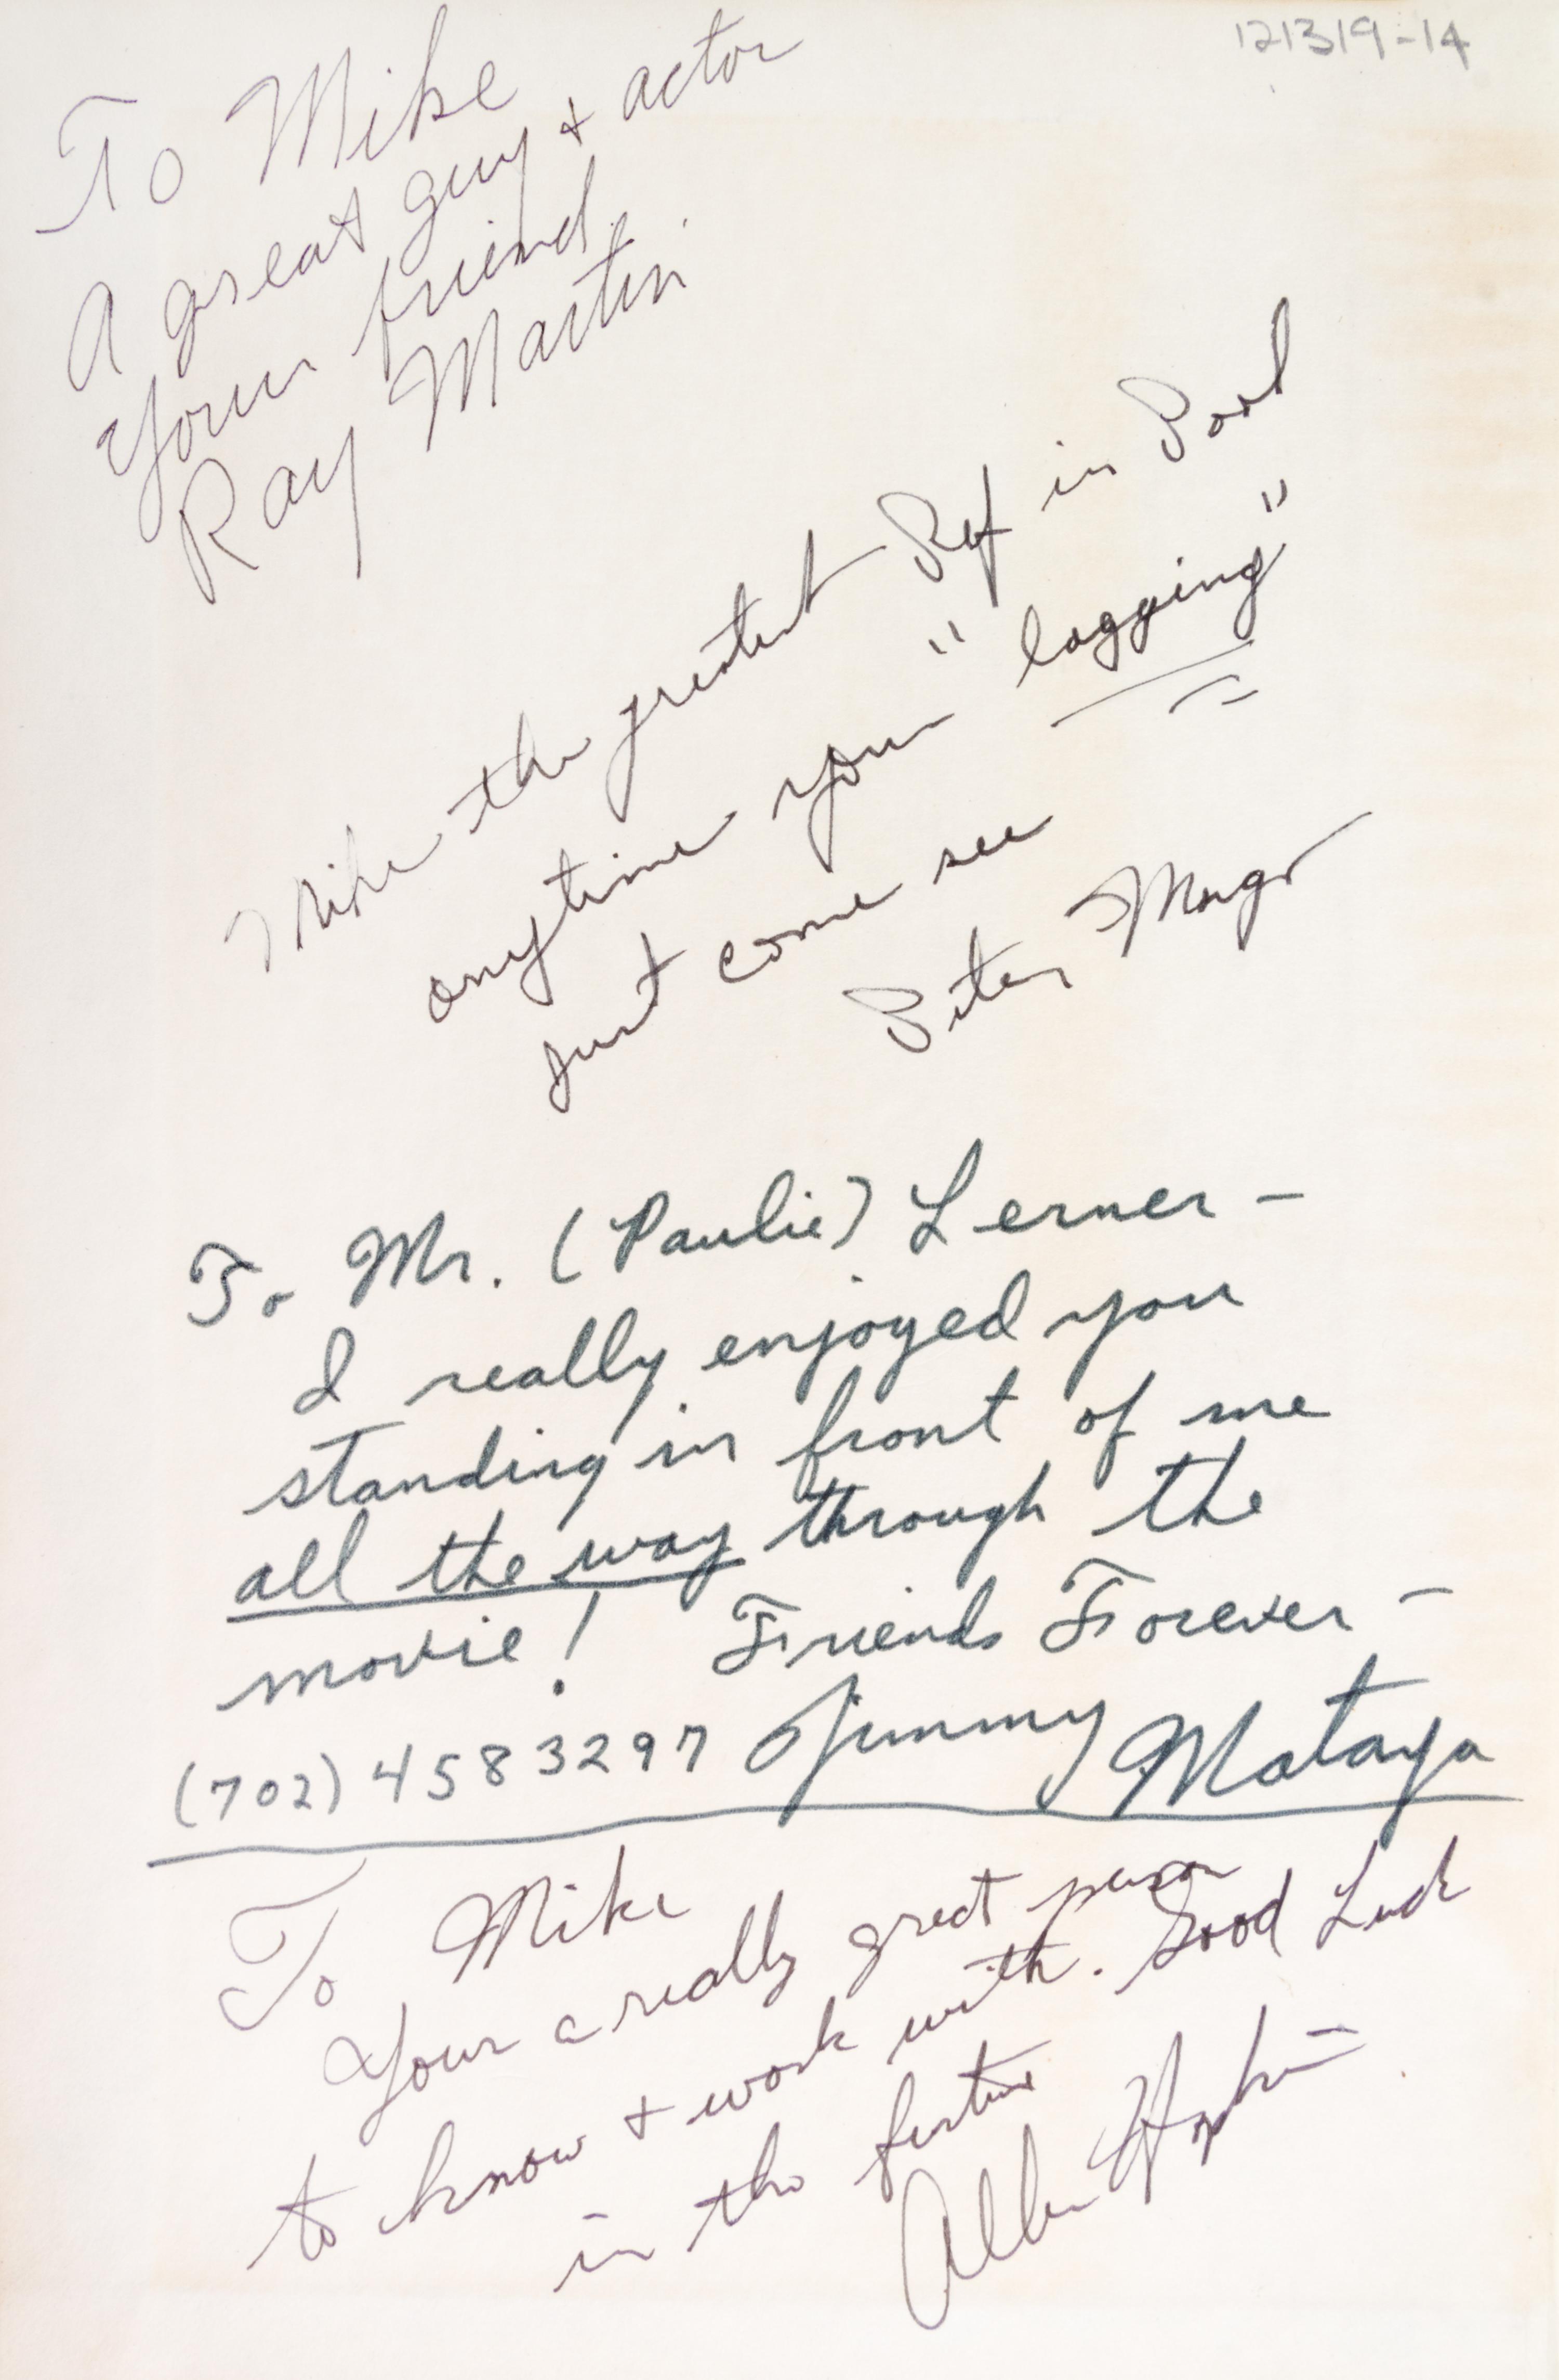 121319-14
To Mike
A great guy + actor
Your friend
Ray Martin
Mike the greatest Ref in Pool
anytime your "lagging"
just come see
Peter Margo
To Mr. (Paulie) Lerner -
I really enjoyed you
standing in front of me
all the way through the
movie! Friends Forever -
(702) 458 3297 Jimmy Mataya
To Mike
Your a really great person
to know + work with. Good Luck
in the future
Allen Hopkins